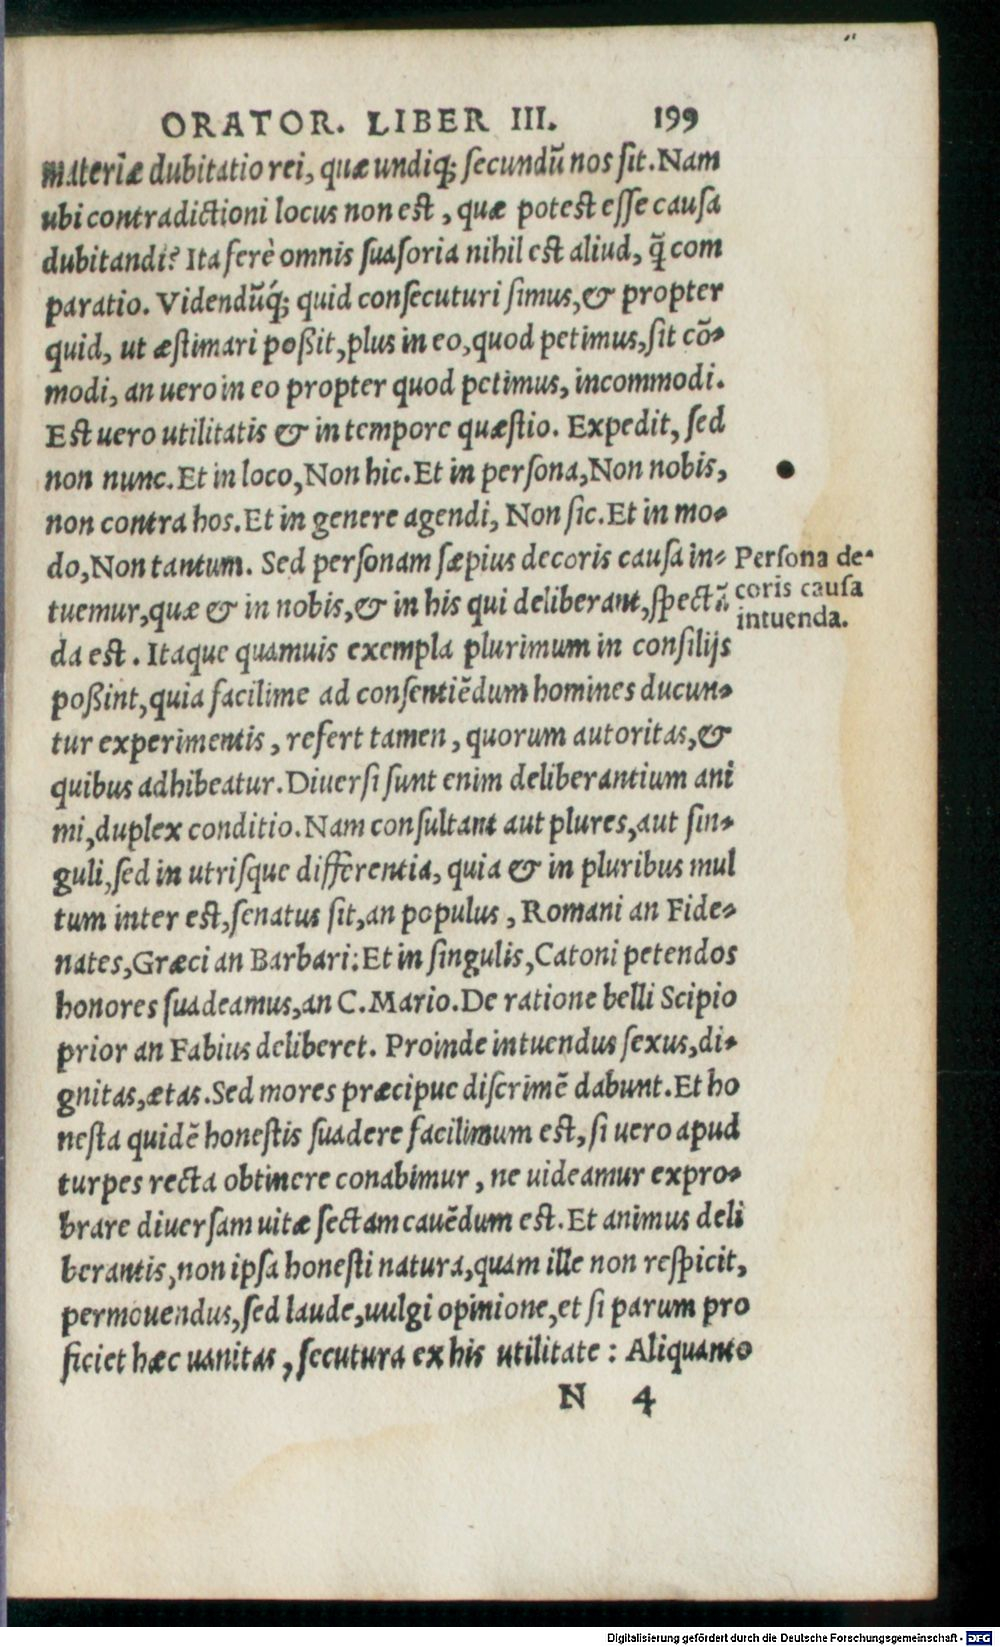 ORATOR. LIBER III. 199
materiæ dubitatio rei, quæ undiqꝫ secundũ nos sit. Nam
ubi contradictioni locus non est, quæ potest esse causa
dubitandi? Ita ferè omnis suasoria nihil est aliud, q̃ com
paratio. Videndũq́ꝫ quid consecuturi simus, & propter
quid, ut æstimari poßit, plus in eo, quod petimus, sit cõ-
modi, an uero in eo propter quod petimus, incommodi.
Est uero utilitatis & in tempore quæstio. Expedit, sed
non nunc. Et in loco, Non hic. Et in persona, Non nobis,
non contra hos. Et in genere agendi, Non sic. Et in mo-
do, Non tantum. Sed personam sæpius decoris causa in-
tuemur, quæ & in nobis, & in his qui deliberant, spectã
da est. Itaque quamuis exempla plurimum in consilijs
poßint, quia facilime ad consentiẽdum homines ducun-
tur experimentis, refert tamen, quorum autoritas, &
quibus adhibeatur. Diuersi sunt enim deliberantium ani
mi, duplex conditio. Nam consultant aut plures, aut sin-
guli, sed in utrisque differentia, quia & in pluribus mul
tum inter est, senatus sit, an populus, Romani an Fide-
nates, Græci an Barbari: Et in singulis, Catoni petendos
honores suadeamus, an C. Mario. De ratione belli Scipio
prior an Fabius deliberet. Proinde intuendus sexus, di-
gnitas, ætas. Sed mores præcipue discrimẽ dabunt. Et ho
nesta quidẽ honestis suadere facilimum est, si uero apud
turpes recta obtinere conabimur, ne uideamur expro-
brare diuersam uitæ sectam cauẽdum est. Et animus deli
berantis, non ipsa honesti natura, quam ille non respicit,
permouendus, sed laude, uulgi opinione, et si parum pro
ficiet hæc uanitas, secutura ex his utilitate: Aliquanto
N 4
Persona de-
coris causa
intuenda.
Digitalisierung gefördert durch die Deutsche Forschungsgemeinschaft - DFG